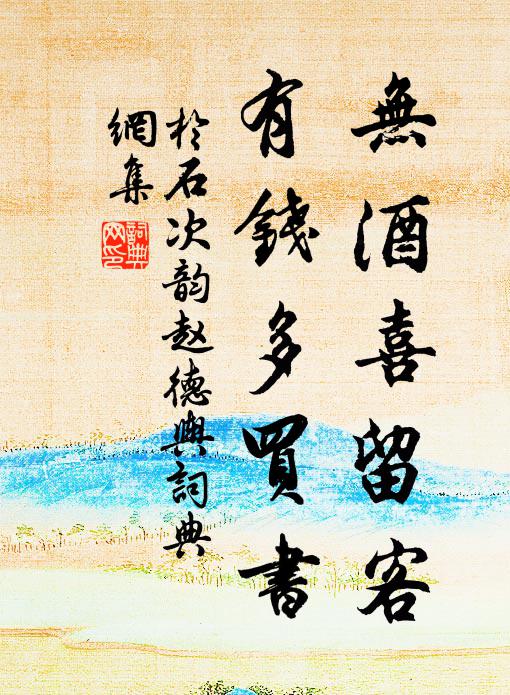 無酒喜留客
有錢多買書
於石次韵赵德輿詞典
網集
詞典
网印